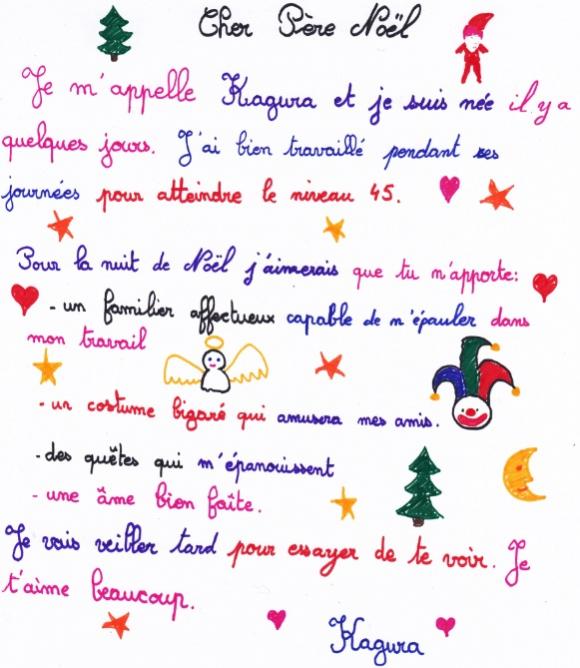 Cher Père Noël
Je m'appelle Kagura et je suis née il y a
quelques jours. J'ai bien travaillé pendant ses
journées pour atteindre le niveau 45.
Pour la nuit de Noël j'aimerais que tu m'apporte:
- un familier affectueux capable de m'épauler dans
mon travail
- un costume bigaré qui amusera mes amis.
- des quêtes qui m'épanouissent
- une âme bien faîte.
Je vais veiller tard pour essayer de te voir. Je
t'aime beaucoup.
Kagura